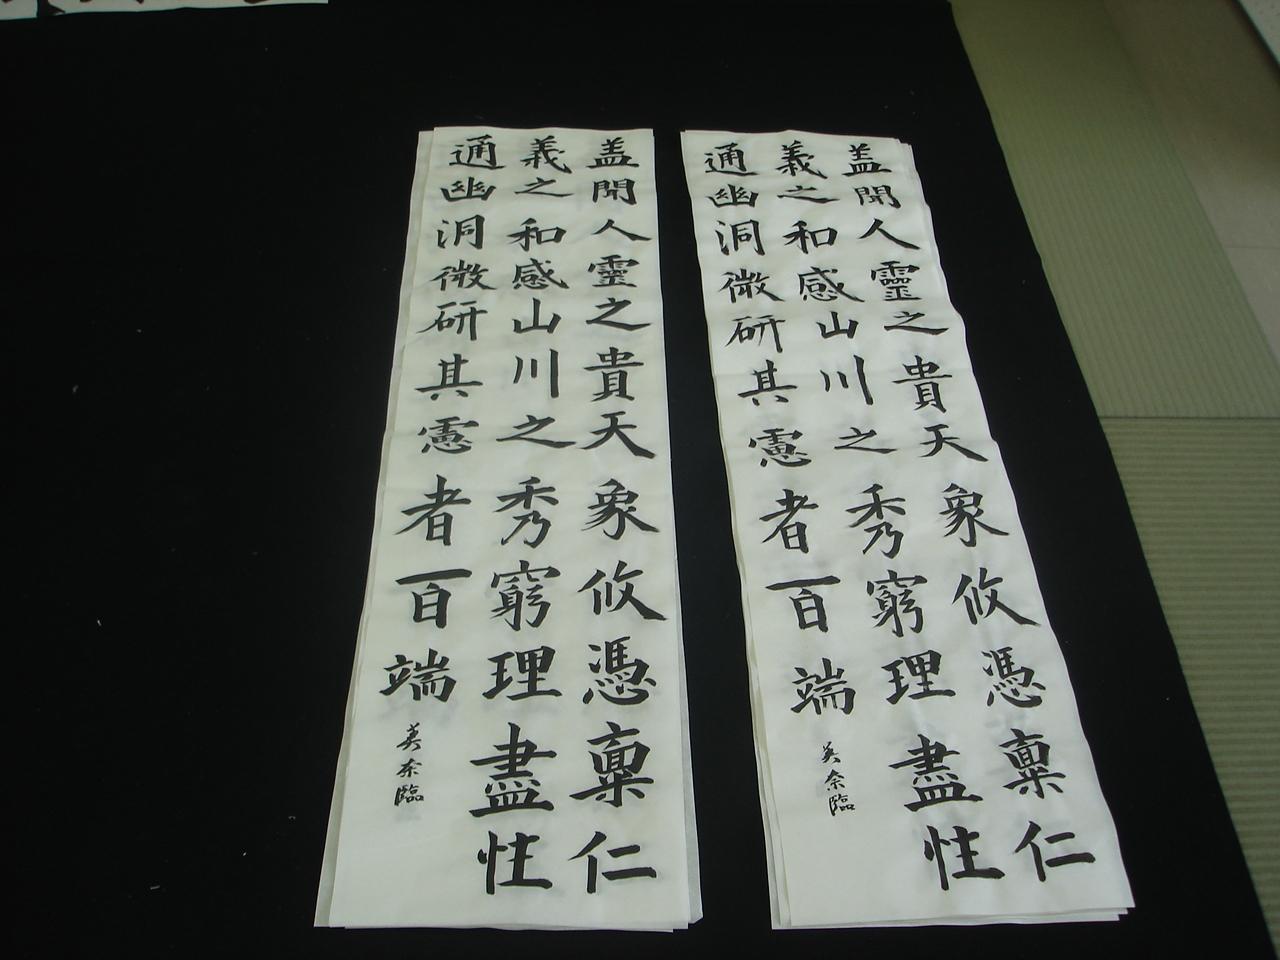 盖聞人靈之貴天象攸憑稟仁
義之和感山川之秀窮理盡性
通幽洞微研其慮者百端
英奈臨
盖聞人靈之貴天象攸憑稟仁
義之和感山川之秀窮理盡性
通幽洞微研其慮者百端
英奈臨